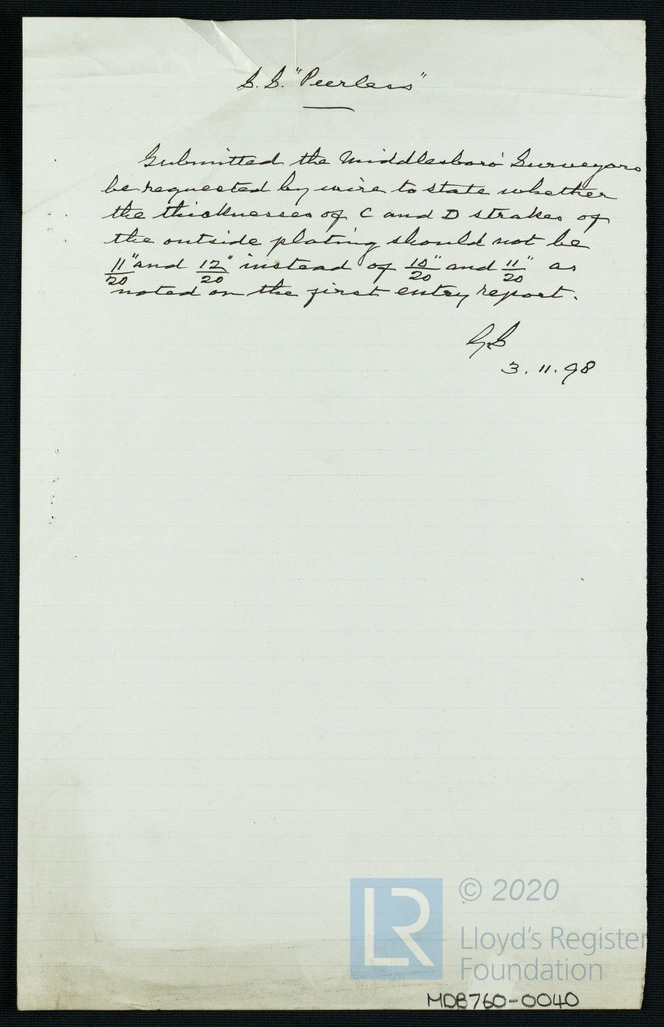 S.S. "Peerless"
Submitted the Middlesboro' Surveyors
be requested by wire to state whether
the thicknesses of C and D strakes of
the outside plating should not be
11/20" and 12/20" instead of 10/20" and 11/20" as
noted on the first entry report.
3.11.98
LR
© 2020
Lloyd's Register
Foundation
MDB760-0040